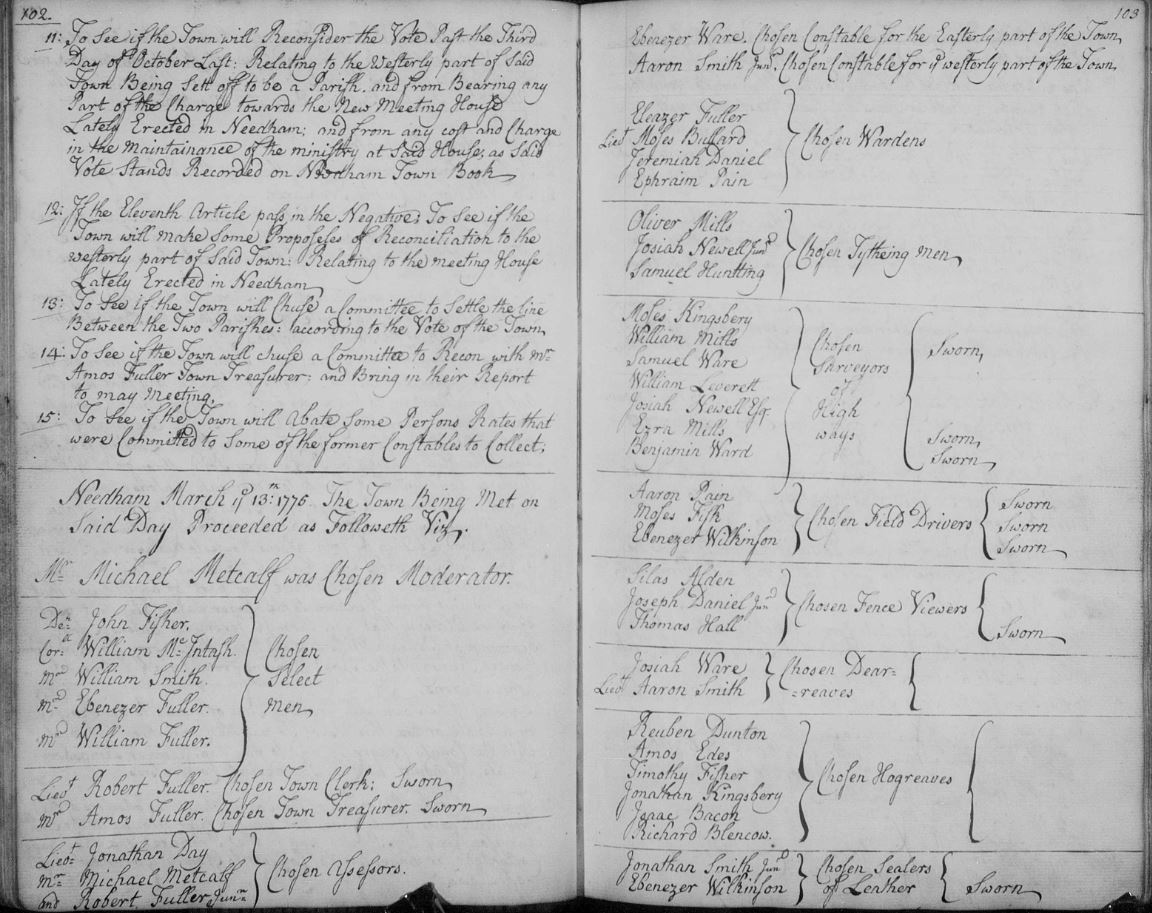 102.
11: To See if the Town will Reconsider the Vote Past the Third
Day of October Last: Relating to the Westerly part of Said
Town Being Sett off to be a Parish, and from Bearing any
Part of the Charge towards the New Meeting House
Lately Erected in Needham; and from any cost and Charge
in the Maintainance of the ministry at Said House; as Said
Vote Stands Recorded on Needham Town Book
12: If the Eleventh Article pass in the Negative; To See if the
Town will make Some Proposeles of Reconciliation to the
westerly part of Said Town: Relating to the meeting House
Lately Erected in Needham
13: To See if the Town will Chuse a Committee to Settle the line
Between the Two Parishes: according to the Vote of the Town
14: To See if the Town will chuse a Committee to Recon with Mr
Amos Fuller Town Treasurer: and Bring in their Report
to may Meeting.
15: To See if the Town will Abate Some Persons Rates that
were Committed to Some of the former Constables to Collect.
Needham March ye 13th: 1775 The Town Being Met on
Said Day Proceeded as Followeth Viz.
Mr Michael Metcalf was Chosen Moderator.
Den John Fisher,
Cor: William Mc Intash.
Mr William Smith.
Mr Ebenezer Fuller.
Mr William Fuller.
Chosen
Select
Men
Lieut Robert Fuller. Chosen Town Clerk; Sworn
Mr Amos Fuller. Chosen Town Treasurer. Sworn
Lieut Jonathan Day
Mr Michael Metcalf
and Robert Fuller Junr
Chosen Assessors.
103
Ebenezer Ware. Chosen Constable for the Easterly part of the Town
Aaron Smith Junr. Chosen Constable for ye westerly part of the Town
Eleazer Fuller
Lieut Moses Bullard
Jeremiah Daniel
Ephraim Pain
Chosen Wardens
Oliver Mills
Josiah Newell Junr
Samuel Huntting
Chosen Tytheing Men
Moses Kingsbery
William Mills
Samuel Ware
William Leverett
Josiah Newell Esqr
Ezra Mills
Benjamin Ward
Chosen
Surveyors
of
High
ways
Sworn
Sworn
Sworn
Aaron Pain
Moses Fisk
Ebenezer Wilkinson
Chosen Field Drivers
Sworn
Sworn
Sworn
Silas Alden
Joseph Daniel Junr
Thomas Hall
Chosen Fence Viewers
Sworn
Josiah Ware
Lieut Aaron Smith
Chosen Dear=
=reaves
Reuben Dunton
Amos Edes
Timothy Fisher
Jonathan Kingsbery
Isaac Bacon
Richard Blencow.
Chosen Hogreaves
Jonathan Smith Junr
Ebenezer Wilkinson
Chosen Sealers
of Leather
Sworn